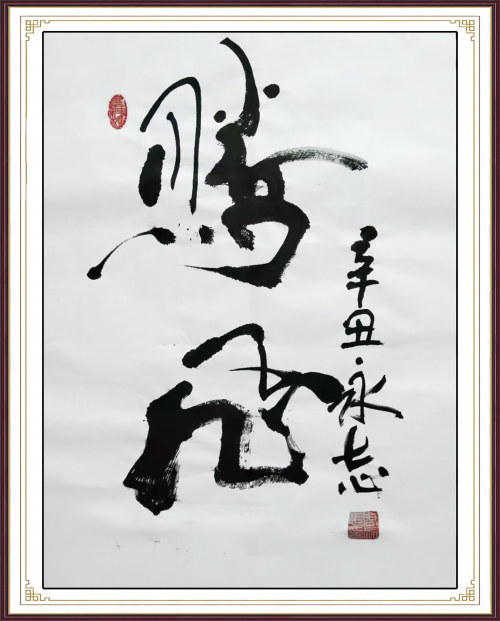 腾飞
辛丑永志